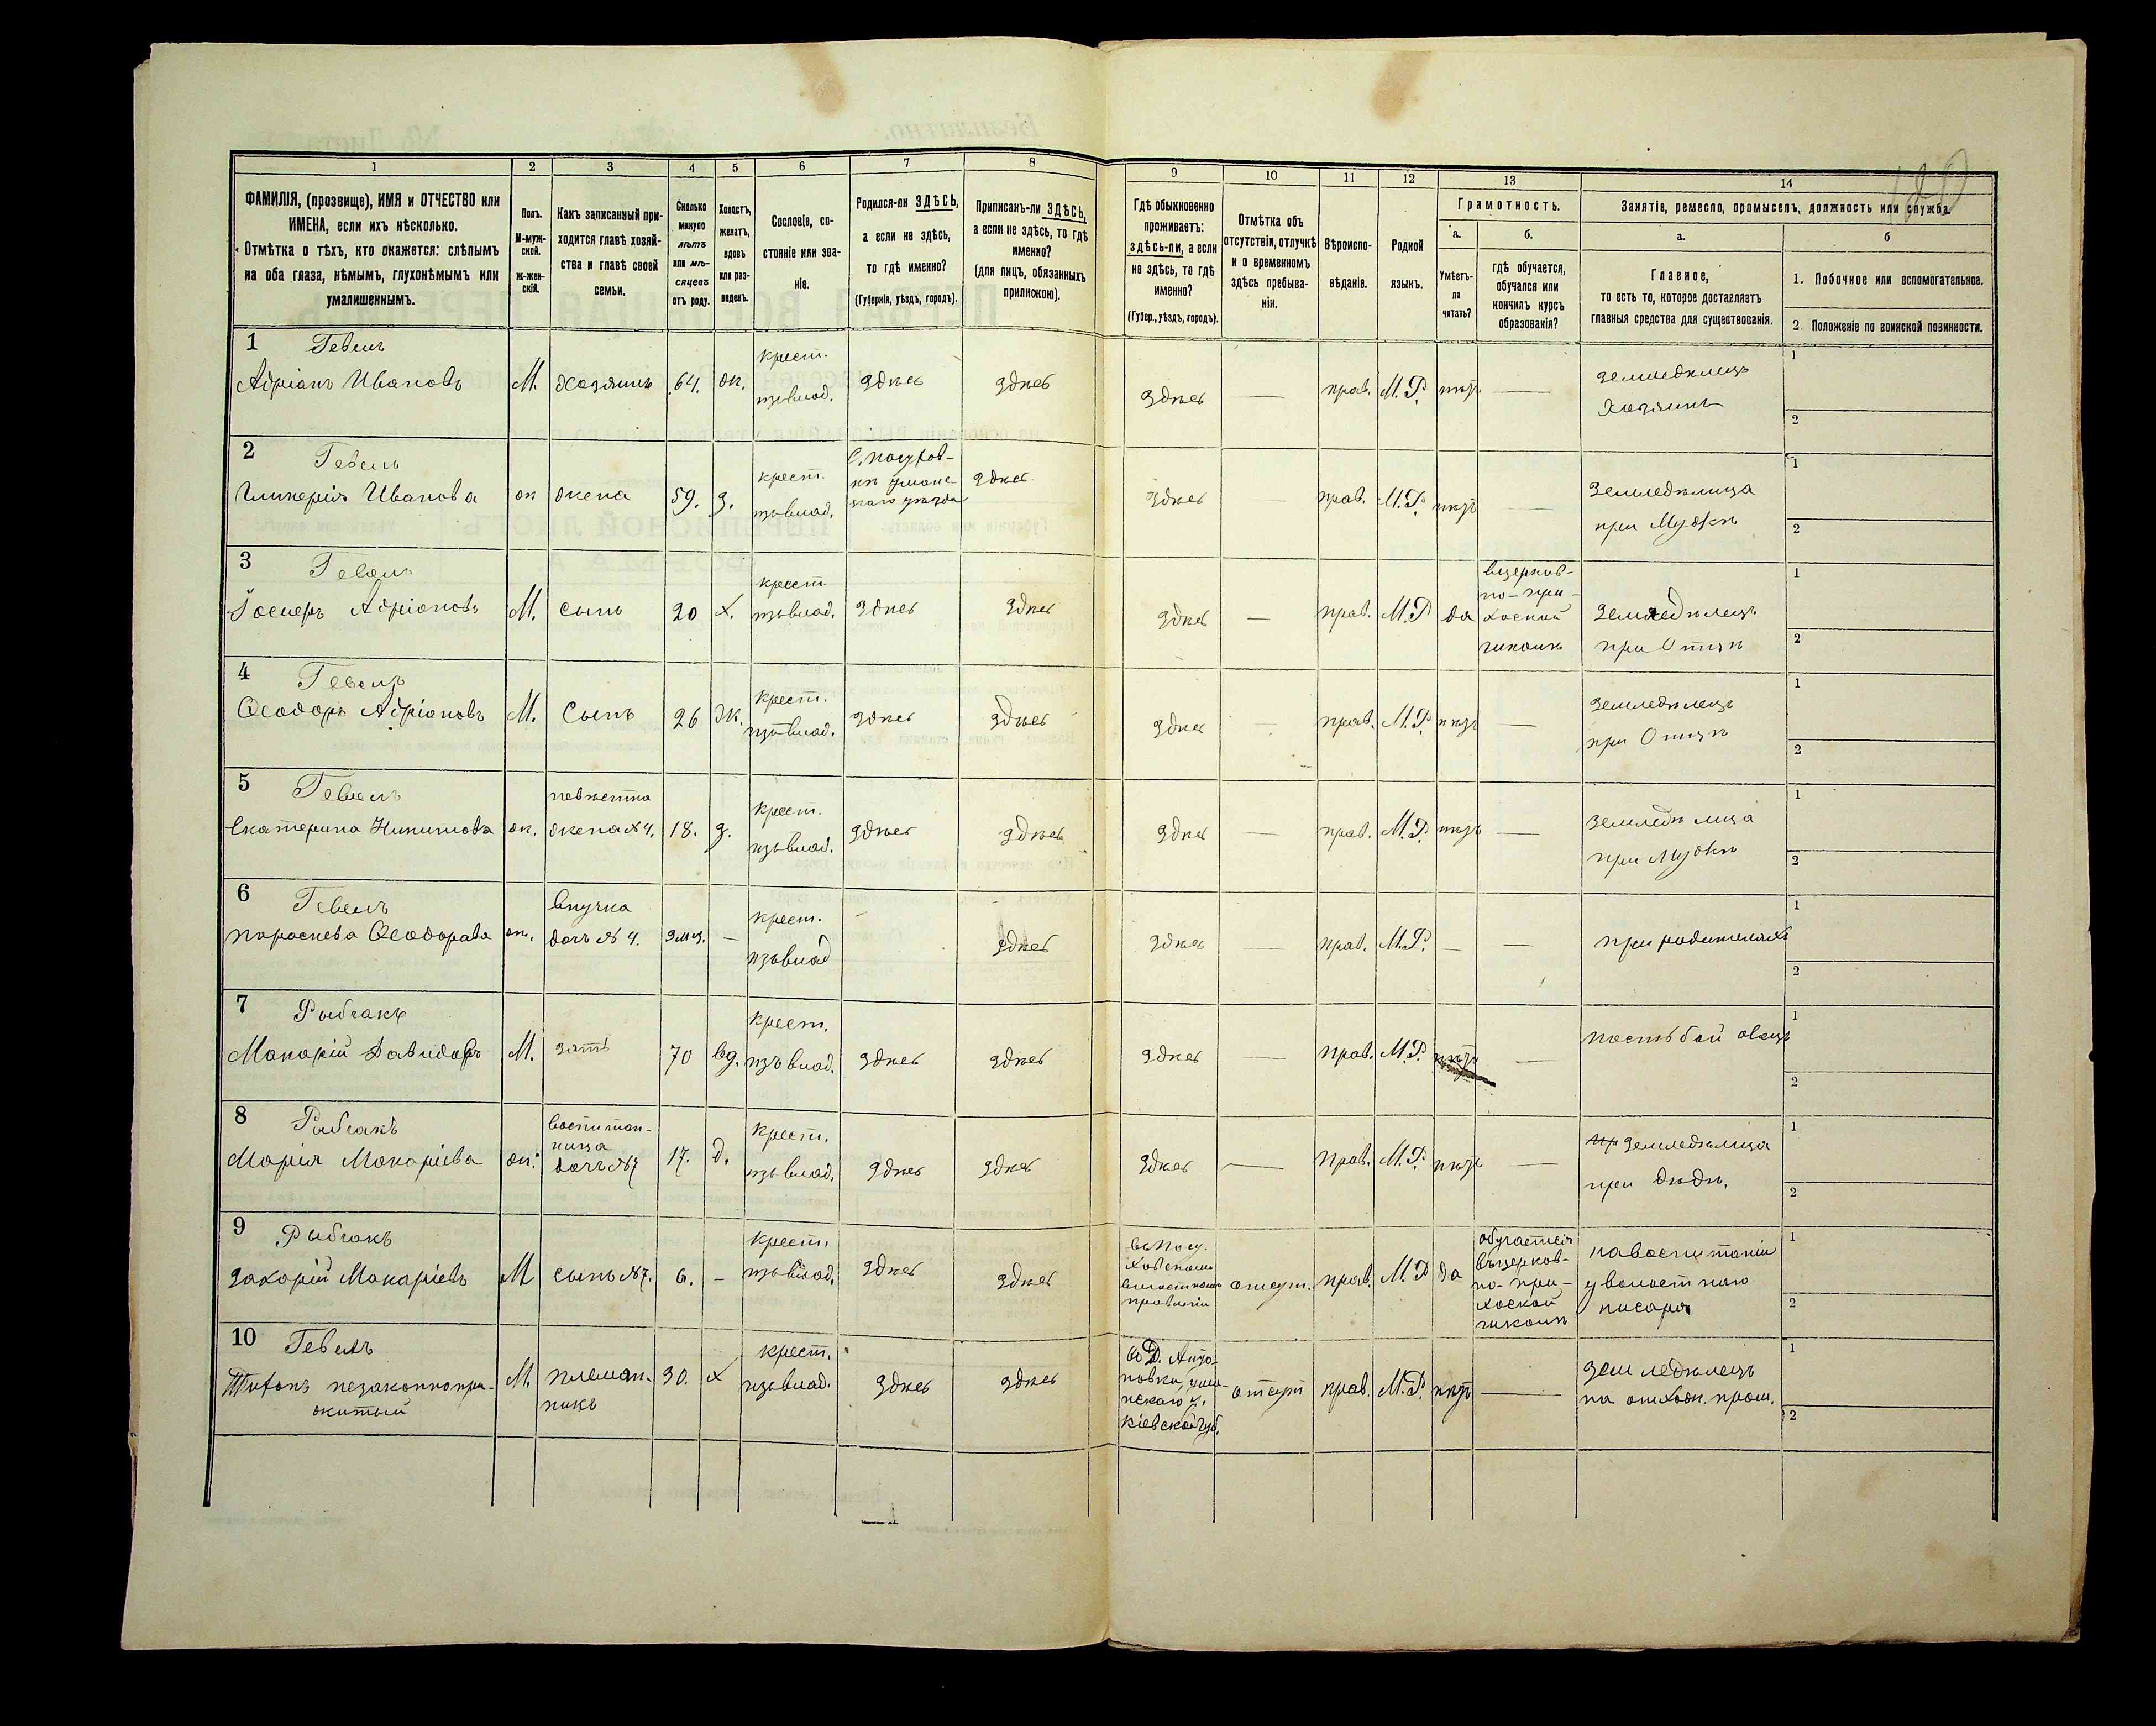 1 2 3 4 5 6 7 8 9 10 11 12 13 14
ФАМИЛІЯ, (прозвище), ИМЯ и ОТЧЕСТВО или
ИМЕНА, если ихъ нѣсколько.
Отмѣтка о тѣхъ, кто окажется: слѣпымъ
на оба глаза, нѣмымъ, глухонѣмымъ или
умалишеннымъ.
Полъ.
М-муж-
ской.
ж-жен-
скій.
Какъ записанный при-
ходится главѣ хозяй-
ства и главѣ своей
семьи.
Сколько
минуло
лѣтъ
или мѣ-
сяцевъ
отъ роду.
Холостъ,
женатъ,
вдовъ
или раз-
веденъ.
Сословіе, со-
стояніе или зва-
ніе.
Родился-ли ЗДѢСЬ,
а если не здѣсь,
то гдѣ именно?
(Губернія, уѣздъ, городъ).
Приписанъ-ли ЗДѢСЬ,
а если не здѣсь, то гдѣ
именно?
(для лицъ, обязанныхъ
припискою).
Гдѣ обыкновенно
проживаетъ:
здѣсь-ли, а если
не здѣсь, то гдѣ
именно?
(Губер., уѣздъ, городъ).
Отмѣтка объ
отсутствіи, отлучкѣ
и о временномъ
здѣсь пребыва-
ніи.
Вѣроиспо-
вѣданіе.
Родной
языкъ.
Грамотность.
а.
Умѣетъ-
ли
читать?
б.
гдѣ обучается,
обучался или
кончилъ курсъ
образованія?
Занятіе, ремесло, промыселъ, должность или служба.
а.
Главное,
то есть то, которое доставляетъ
главныя средства для существованія.
б
1. Побочное или вспомогательное.
2. Положеніе по воинской повинности.
1 Гевелъ
Адріанъ Ивановъ
М.
Хозяинъ
64.
ж.
крест.
изъ влад.
здѣсь
здѣсь
здѣсь
—
прав.
М. Р.
нѣтъ
—
земледѣлецъ
Хозяинъ
1
2
2 Гевелъ
Гликерія Иванова
ж
жена
59.
з.
крест.
изъ влад.
здѣсь
здѣсь
прав.
М. Р.
нѣтъ
—
земледѣлица
при Мужѣ
1
2
3 Гевелъ
Іосифъ Адріановъ
М.
сынъ
20
х.
крест.
изъ влад.
здѣсь
здѣсь
здѣсь
—
прав.
М. Р
да
въ церков-
но-при-
хоской
школѣ
земледѣлецъ
при Отцѣ
1
2
4 Гевелъ
Ѳеодоръ Адріановъ
М.
Сынъ
26
ж.
крест.
изъ влад.
здѣсь
здѣсь
здѣсь
—
прав.
М. Р.
нѣтъ
—
земледѣлецъ
при Отцѣ
1
2
5 Гевелъ
Екатерина Никитова
ж.
невѣстка
жена №4.
18.
з.
крест.
изъ влад.
здѣсь
здѣсь
здѣсь
—
прав.
М. Р.
нѣтъ
—
земледѣлица
при Мужѣ
1
2
6 Гевелъ
Параскева Ѳеодорова
ж.
внучка
дочь №4.
—
крест.
изъ влад
здѣсь
здѣсь
—
прав.
М. Р.
—
—
при родителяхъ
1
2
7 Рыбчакъ
Макарій Давидовъ
М.
зять
70
вд.
крест.
изъ влад.
здѣсь
здѣсь
здѣсь
—
прав.
М. Р.
нѣтъ
—
пастьбой овецъ
1
2
8 Рыбчакъ
Марія Макаріева
ж.
воспитан-
ница
дочь №7
17.
д.
крест.
изъ влад.
здѣсь
здѣсь
здѣсь
—
прав.
М. Р.
нѣтъ
—
земледѣлица
при дѣдѣ.
1
2
9 Рыбчакъ
Захарій Макаріевъ
М
сынъ №7.
6.
–
крест.
изъ влад.
здѣсь
здѣсь
волостномъ
правленіи
отсут.
прав.
М. Р
да
обучается
въ церков-
но-при-
хоской
школѣ
на воспитаніи
у волостного
писаря
1
2
10 Гевелъ
Тихонъ незаконнопри-
житый
М.
племян-
никъ
30.
х
крест.
изъ влад.
здѣсь
здѣсь
Д. Анто-
новка, ума-
нскаго у.
кіевской губ.
отсут
прав.
М. Р.
нѣтъ
—
земледѣлецъ
на отхож. пром.
1
2